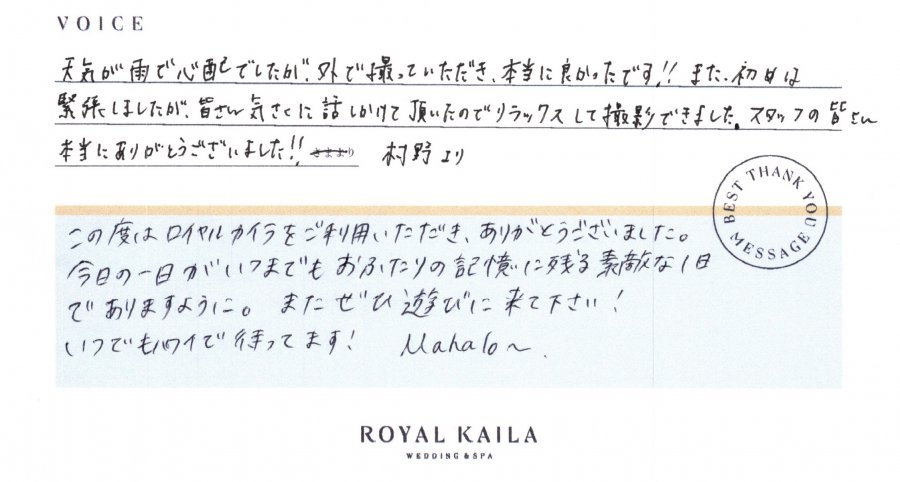 VOICE
天気が雨で心配でしたが、外で撮っていただき、本当に良かったです!! また、初めは
緊張しましたが、皆さん気さくに話しかけて頂いたのでリラックスして撮影できました。スタッフの皆さん
本当にありがとうございました!! 村野より
BEST THANK YOU MESSAGE
この度はロイヤルカイラをご利用いただき、ありがとうございました。
今日の一日がいつまでもおふたりの記憶に残る素敵な1日
でありますように。またぜひ遊びに来て下さい!
いつでもハワイで待ってます! Mahalo〜.
ROYAL KAILA
WEDDING & SPA